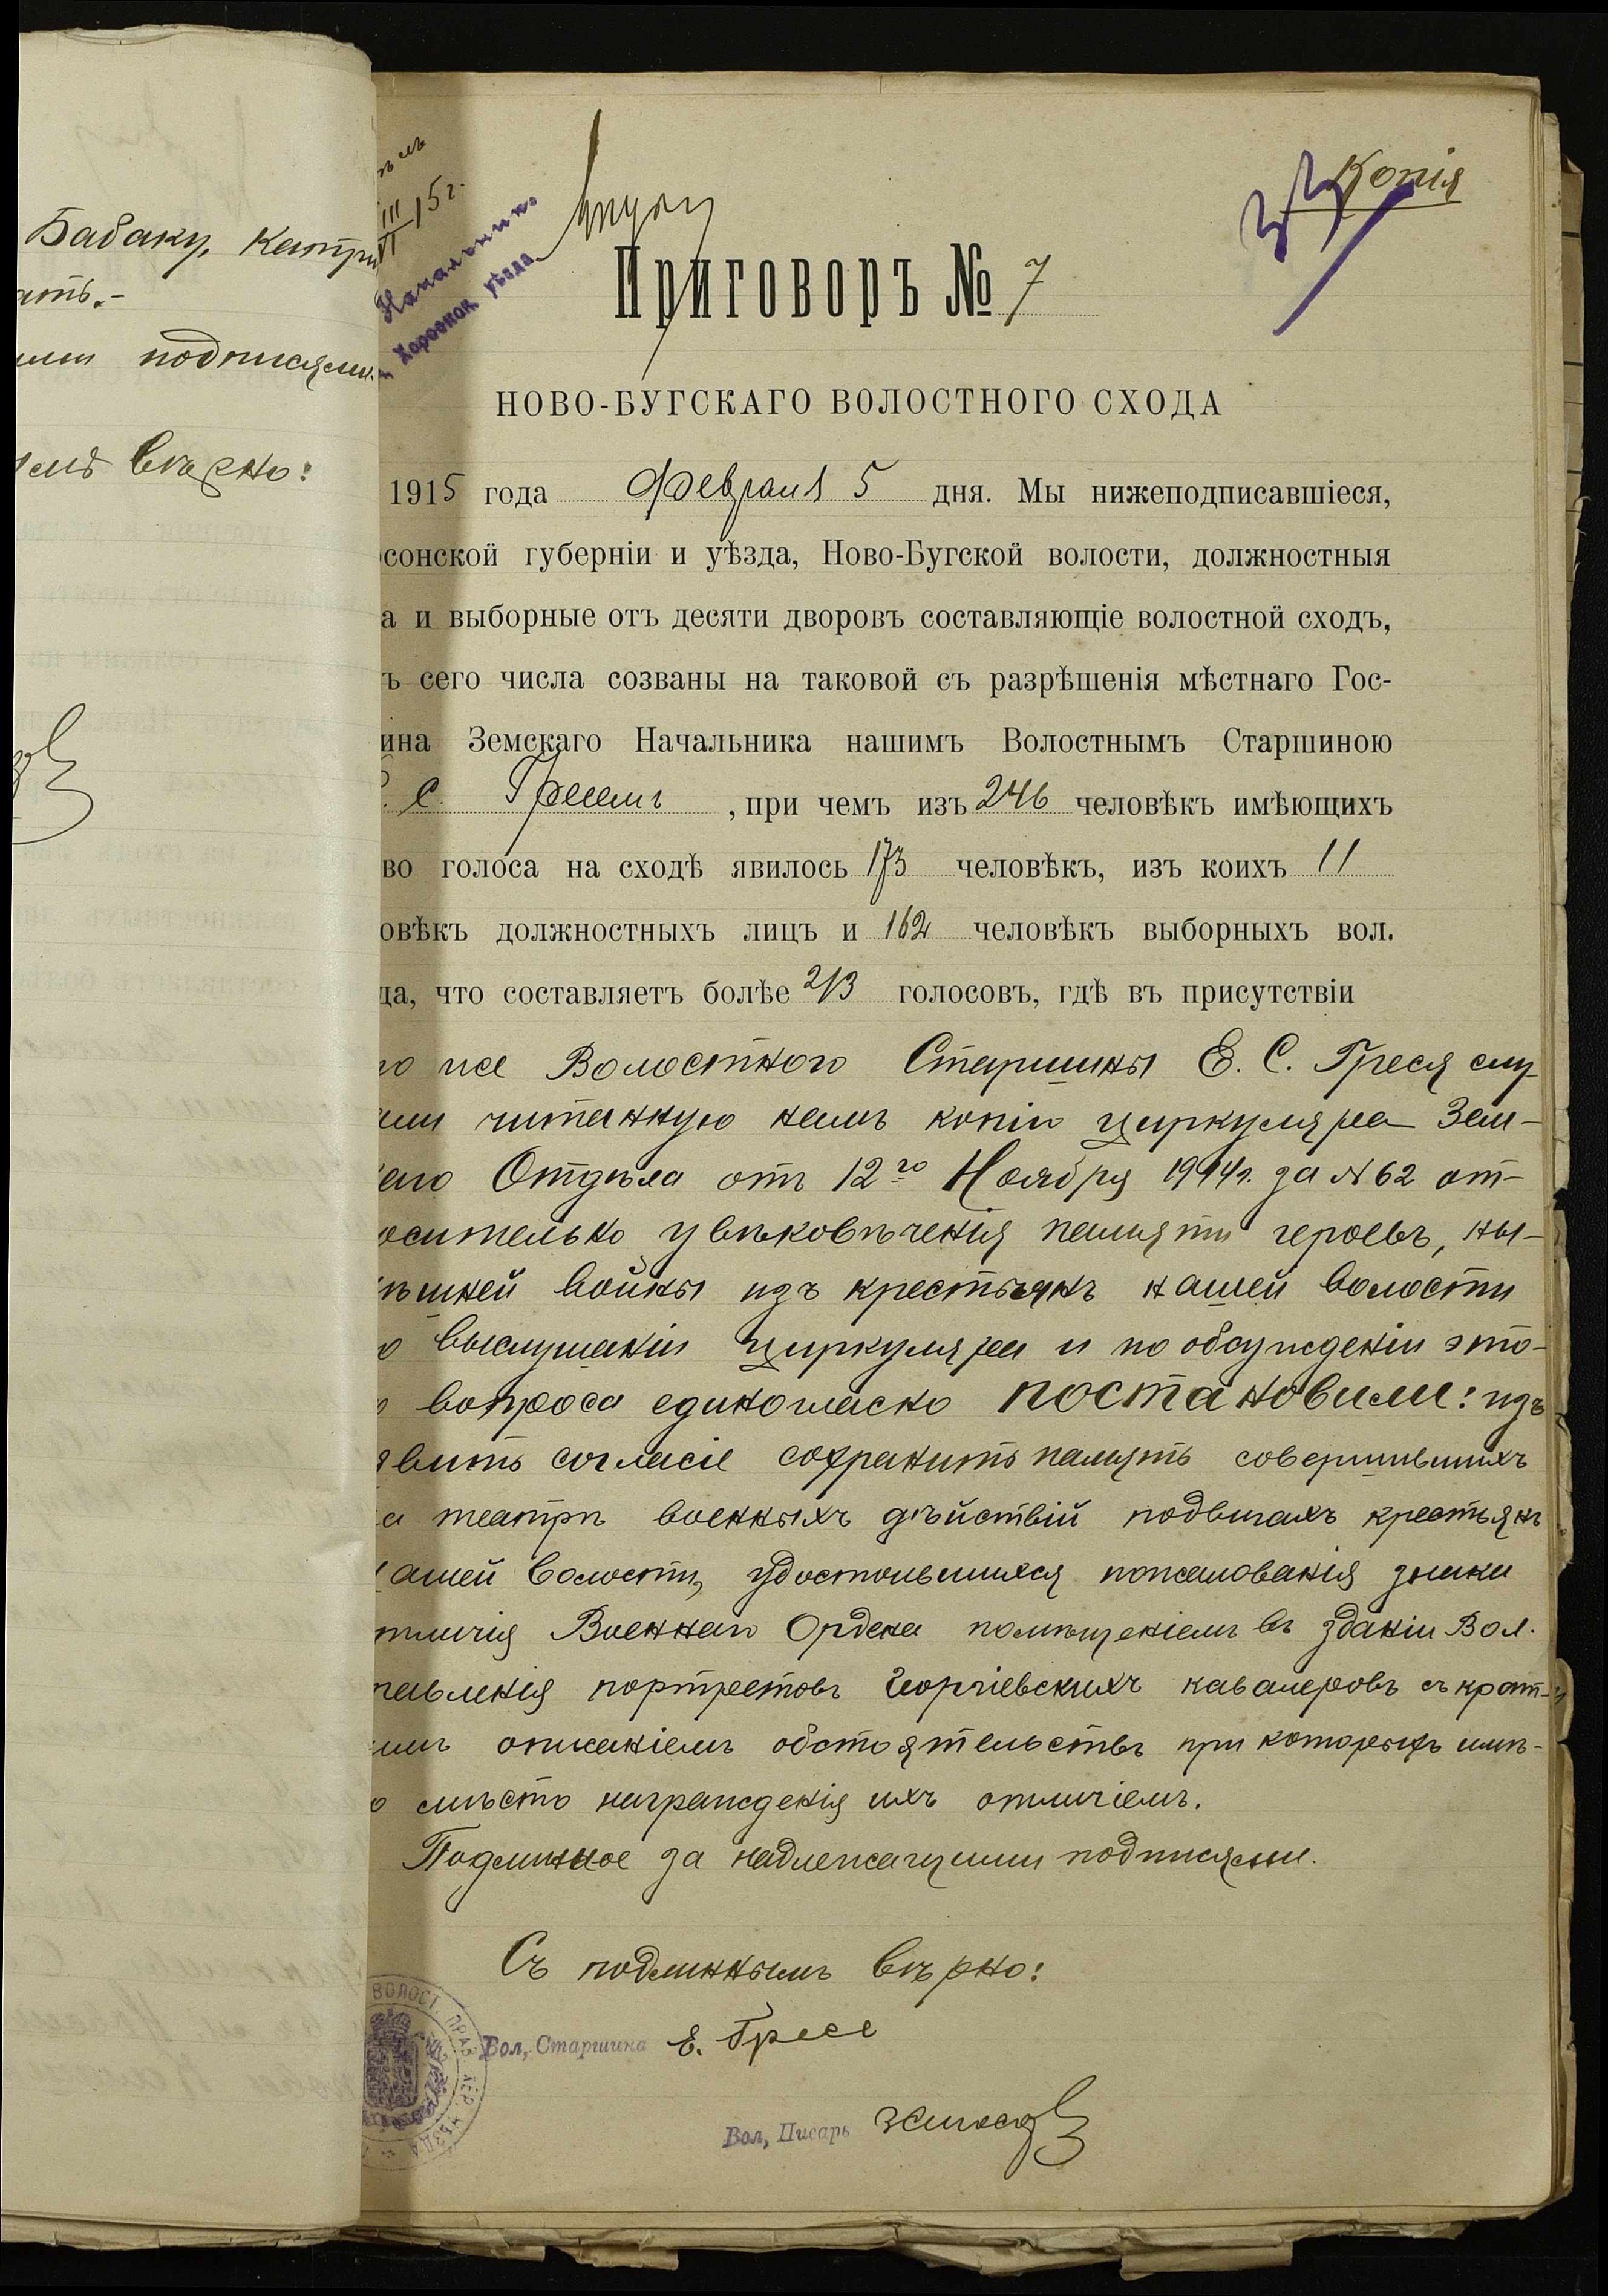 Бабаку, Катри
ать.-
подписями.
вѣрно:
III
VI 15 г.
Начальникъ
Херсонск. уѣзда
Копія
33
Приговоръ № 7
НОВО-БУГСКАГО ВОЛОСТНОГО СХОДА
1915 года Февраля 5 дня. Мы нижеподписавшіеся,
сонской губерніи и уѣзда, Ново-Бугской волости, должностныя
а и выборные отъ десяти дворовъ составляющіе волостной сходъ,
ъ сего числа созваны на таковой съ разрѣшенія мѣстнаго Гос-
ина Земскаго Начальника нашимъ Волостнымъ Старшиною
. С. Гресемъ, при чемъ изъ 246 человѣкъ имѣющихъ
во голоса на сходѣ явилось 173 человѣкъ, изъ коихъ 11
овѣкъ должностныхъ лицъ и 162 человѣкъ выборныхъ вол.
да, что составляетъ болѣе 2/3 голосовъ, гдѣ въ присутствіи
го же Волостного Старшины Е. С. Греся слу-
али читанную намъ копію циркуляра Зем-
аго Отдѣла отъ 12го Ноября 1914 г. за № 62 от-
осительно увѣковѣченія памяти героевъ, ны-
ѣшней войны изъ крестьянъ нашей волости
о выслушаніи циркуляра и по обсужденіи это-
о вопроса единогласно постановили: изъ
явить согласіе сохранить память совершившихъ
а театрѣ военныхъ дѣйствій подвигахъ крестьянъ
ашей волости, удостоившихся пожалованія знака
тличія Военнаго Ордена помѣщеніемъ въ зданіи Вол.
равленія портретовъ Георгіевскихъ кавалеровъ съ крат-
имъ описаніемъ обстоятельствъ при которыхъ имѣ-
о мѣсто награжденія ихъ отличіемъ.
Подлинное за надлежащими подписями.
Съ подлиннымъ вѣрно:
ВОЛОСТ. ПРАВ. ХЕР. УѢЗДА
Вол. Старшина Е. Гресе
Вол. Писарь